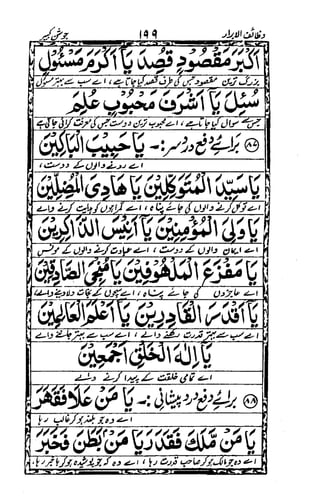 جوشن کبیر ۱۹۹ وظائف الابرار
اَكْبَرَ مَقْصُوْدٍ قُصِدَ يَا اَكْرَمَ مَسْئُوْلٍ
بزرگ ترین مقصود جس کی طرف قصد کیا جاتا ہے، اے سب سے بہتر مسئول
سُئِلَ يَا اَشْرَفَ مَحْبُوْبٍ عُلِمَ
جس سے سوال کیا جاتا ہے، اے محبوب ترین دوست جس کی معرفت کرائی جاتی ہے
(۸۷) برائے دفع درد سر:۔ يَا حَبِيْبَ الْبَاكِيْنَ
اے رونے والوں کے دوست،
يَا سَيِّدَ الْمُتَوَكِّلِيْنَ يَا هَادِيَ الْمُضِلِّيْنَ
اے توکل کرنے والوں کی جائے پناہ، اے گمراہوں کو ہدایت کرنے والے
يَا وَلِيَّ الْمُؤْمِنِيْنَ يَا اَنِيْسَ الذَّاكِرِيْنَ
اے ایمان والوں کے دوست، اے عبادت کرنے والوں کے مونس
يَا مَفْزَعَ الْمَلْهُوْفِيْنَ يَا مُنْجِيَ الصَّادِقِيْنَ
اے عاجزوں کی جائے پناہ، اے سچوں کے نجات دلانے والے،
يَا اَقْدَرَ الْقَادِرِيْنَ يَا اَعْلَمَ الْعَالِمِيْنَ
اے سب سے بہتر قدرت رکھنے والے، اے سب سے بہتر جاننے والے
يَا اِلٰهَ الْخَلْقِ اَجْمَعِيْنَ
اے تمامی خلقت کے پیدا کرنے والے
(۸۸) برائے دفع درد پیشانی:۔ يَا مَنْ عَلَا فَقَهَرَ
اے وہ جو بلند ہو کر غالب رہا
يَا مَنْ مَلَكَ فَقَدَرَ يَا مَنْ بَطَنَ فَخَبَرَ
اے وہ جو مالک ہو کر صاحب قدرت رہا، اے وہ کہ جو پوشیدہ ہو کر باخبر رہا،